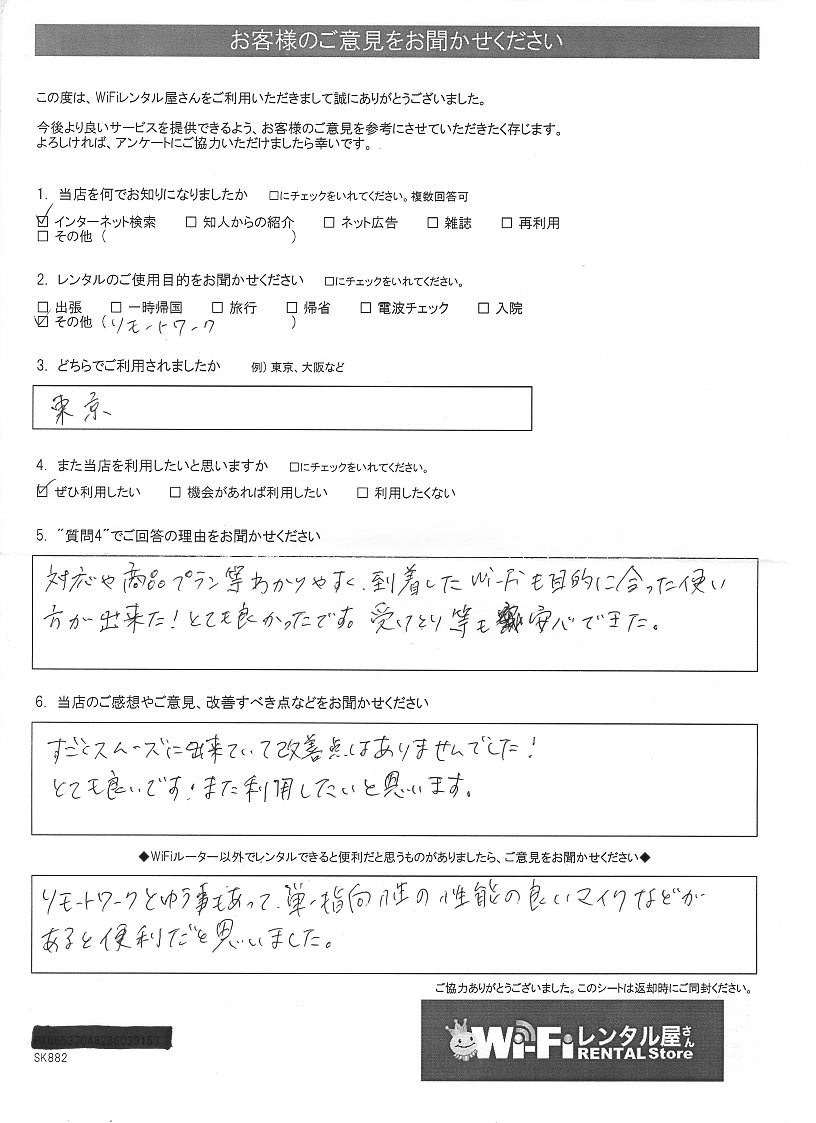 お客様のご意見をお聞かせください
この度は、WiFiレンタル屋さんをご利用いただきまして誠にありがとうございました。
今後より良いサービスを提供できるよう、お客様のご意見を参考にさせていただきたく存じます。
よろしければ、アンケートにご協力いただけましたら幸いです。
1. 当店を何でお知りになりましたか □にチェックをいれてください。複数回答可
☑ インターネット検索 □ 知人からの紹介 □ ネット広告 □ 雑誌 □ 再利用
□ その他 ( )
2. レンタルのご使用目的をお聞かせください □にチェックをいれてください。
□ 出張 □ 一時帰国 □ 旅行 □ 帰省 □ 電波チェック □ 入院
☑ その他 (リモートワーク )
3. どちらでご利用されましたか 例) 東京、大阪など
東京
4. また当店を利用したいと思いますか □にチェックをいれてください。
☑ ぜひ利用したい □ 機会があれば利用したい □ 利用したくない
5. “質問4”でご回答の理由をお聞かせください
対応や商品プラン等わかりやすく、到着したWi-Fiも目的に合った使い
方が出来た!とても良かったです。受けとり等も安心できた。
6. 当店のご感想やご意見、改善すべき点などをお聞かせください
すごくスムーズに出来ていて改善点はありませんでした!
とても良いです!また利用したいと思います。
◆WiFiルーター以外でレンタルできると便利だと思うものがありましたら、ご意見をお聞かせください◆
リモートワークとゆう事もあって、単一指向性の性能の良いマイクなどが
あると便利だなと思いました。
ご協力ありがとうございました。このシートは返却時にご同封ください。
SK882
Wi-Fiレンタル屋さん
RENTAL Store